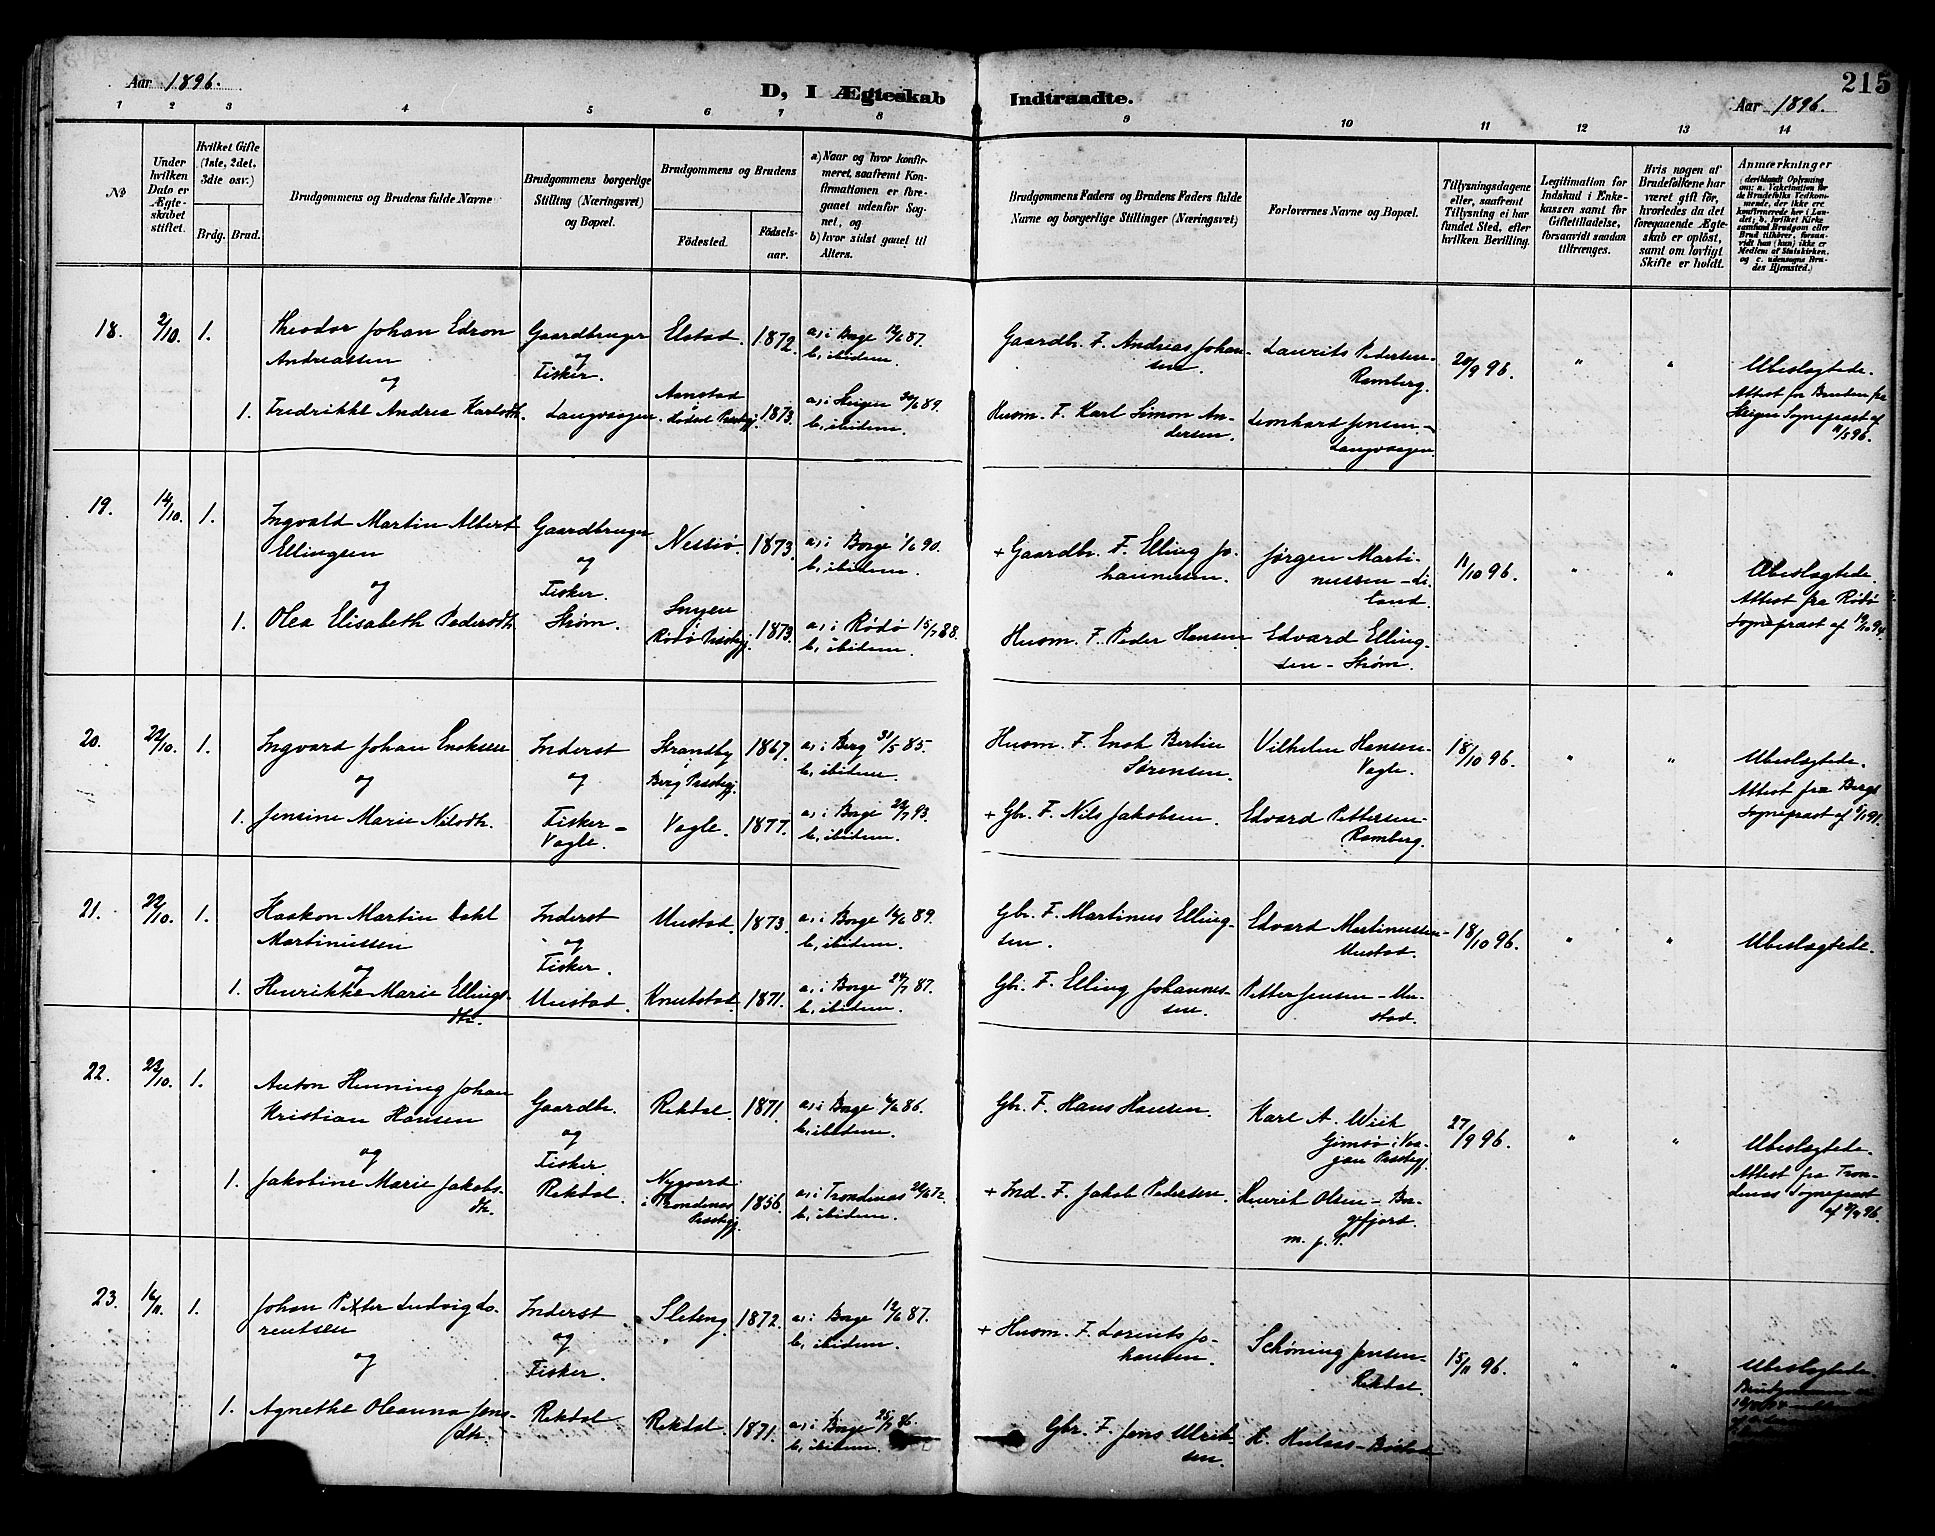 Aar 1896.
D, I Ægteskab Indtraadte.
215
Aar 1896.
1 2 3 4 5 6 7 8 9 10 11 12 13 14
No
Under hvilken Dato er Ægteskabet stiftet.
Hvilket Gifte (1ste, 2det, 3die osv.)
Brdg. Brud.
Brudgommens og Brudens fulde Navne
Brudgommens borgerlige Stilling (Næringsvei) og Bopæl.
Brudgommens og Brudens
Fødested. Fødselsaar.
a) Naar og hvor konfirmeret, saafremt Konfirmationen er foregaaet udenfor Sognet, og
b) hvor sidst gaaet til Alters.
Brudgommens Faders og Brudens Faders fulde Navne og borgerlige Stillinger (Næringsvei)
Forlovernes Navne og Bopæl.
Tillysningsdagene eller, saafremt Tillysning ei har fundet Sted, efter hvilken Bevilling.
Legitimation for Indskud i Enkekassen samt for Giftetilladelse, forsaavidt saadan tiltrænges.
Hvis nogen af Brudefolkene har været gift før, hvorledes da det foregaaende Ægteskab er opløst, samt om lovligt Skifte er holdt.
Anmærkninger (deriblandt Oplysning om: a. Vakcination for de Brudefolks Vedkommende, der ikke ere konfirmerede her i Landet; b. hvilket Kirkesamfund Brudgom eller Brud tilhører, forsaavidt han (hun) ikke er Medlem af Statskirken, og c. udensogns Brudes Hjemsted.)
18. 2/10. 1. Theodor Johan Edron Andreassen Gaardbruger og Fisker. Elstad. 1872. a, i Borge 12/6 87. b, ibidem. Gaardbr. F. Andreas Johansen Laurits Pedersen - Ramberg. 20/9 96. " " Ubeslægtede.
og
1. Fredrikke Andrea Karlsdtr. Langvaagen 1873. a, i Steigen 89. b, ibidem. Husm. F. Karl Simon Andersen. Leonhard Jensen - Langvaagen. Attest for Bruden fra Steigen Sognepræst af 11/5 96.
19. 14/10. 1. Ingvald Martin Albert Ellingsen Gaardbruger og Fisker. Nessiø. 1873. a, i Borge 1/6 90. b, ibidem. + Gaardbr. F. Elling Johannesen. Jørgen Martinussen - Liland. 11/10 96. " " Ubeslægtede.
og
1. Olea Elisabeth Pedersdtr. Strøm. i Rødø Præstegj. 1873. a, i Rødø 15/7 88. b, ibidem. Husm. F. Peder Hansen Edvard Ellingsen - Strøm. Attest fra Rødø Sognepræst af 19/10 94.
20. 22/10. 1. Ingvard Johan Enoksen Inderst og Fisker - Vagle. Strandby i Berg Præstegj. 1867. a, i Berg 31/5 85. b, ibidem. Husm. F. Enok Bertin Sørensen. Vilhelm Hansen - Vagle. 18/10 96. " " Ubeslægtede.
og
1. Jensine Marie Nilsdtr. Vagle. 1877. a, i Borge 23/7 93. b, ibidem. + Gbr. F. Nils Jakobsen. Edvard Pettersen - Ramberg. Attest fra Bergs Sognepræst af 91.
21. 22/10. 1. Haakon Martin Dahl Martinussen Inderst og Fisker. Mustad. 1873. a, i Borge 16/6 89. b, ibidem. Gbr. F. Martinus Ellingsen. Edvard Martinussen - Mustad. 18/10 96. " " Ubeslægtede.
og
1. Henrikke Marie Ellingsdtr. Mustad. Knutstad. 1871. a, i Borge 24/7 87. b, ibidem. Gbr. F. Elling Johannessen. Petter Jensen - Mustad.
22. 23/10. 1. Anton Henning Johan Kristian Hansen Gaardbr. og Fisker. Rekdal. 1871. a, i Borge 6/6 86. b, ibidem. Gbr. F. Hans Hansen. Karl A. Wiik Gimsø i Vaagan Præstegj. 27/9 96. " " Ubeslægtede.
og
1. Jakobine Marie Jakobsdtr. Rekdal. Nygaard i Trondenæs Præstegj. 1856. a, i Trondenæs 72. b, ibidem. + Ind. F. Jakob Pedersen. Henrik Olsen - Bøgefjord. m. p. P. Attest fra Trondenæs Sognepræst af 96.
23. 16/11. 1. Johan Petter Ludvig Lorentsen Inderst og Fisker. Sleteng. 1872. a, i Borge 12/6 87. b, ibidem. + Husm. F. Lorents Johansen. Schøning Jensen - Rekdal. 15/11 96. " " Ubeslægtede.
og
1. Agnethe Oleanna Jensdtr. Rekdal Rekdal. 1871. a, i Borge 25/7 86. b, ibidem. Gbr. F. Jens Ulriksen.